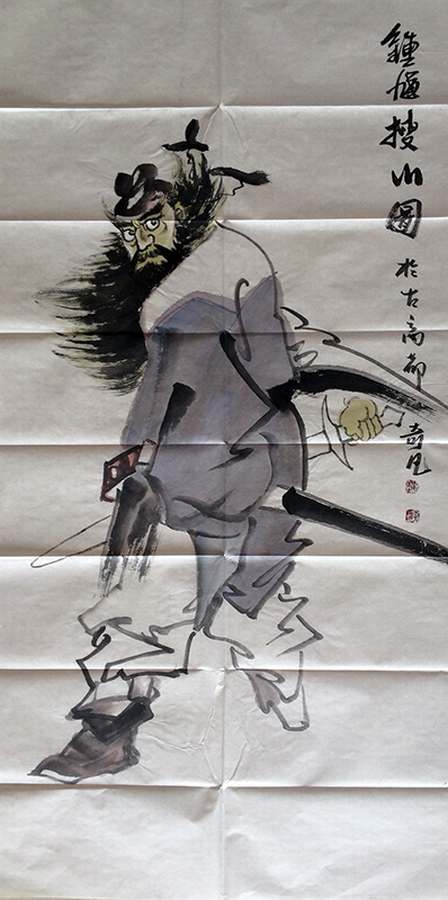 鍾馗搜山圖 於古商都 奇凡